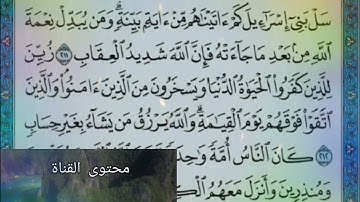 سَلْ بَنِىٓ إِسْرَٰٓءِيلَ كَمْ ءَاتَيْنَٰهُم مِّنْ ءَايَةٍۭ بَيِّنَةٍ ۗ وَمَن يُبَدِّلْ نِعْمَةَ
ٱللَّهِ مِنۢ بَعْدِ مَا جَآءَتْهُ فَإِنَّ ٱللَّهَ شَدِيدُ ٱلْعِقَابِ ٢١١ زُيِّنَ
لِلَّذِينَ كَفَرُوا۟ ٱلْحَيَوٰةُ ٱلدُّنْيَا وَيَسْخَرُونَ مِنَ ٱلَّذِينَ ءَامَنُوا۟ ۘ وَٱلَّذِينَ
ٱتَّقَوْا۟ فَوْقَهُمْ يَوْمَ ٱلْقِيَٰمَةِ ۗ وَٱللَّهُ يَرْزُقُ مَن يَشَآءُ بِغَيْرِ حِسَابٍ
٢١٢ كَانَ ٱلنَّاسُ أُمَّةً
وَمُنذِرِينَ وَأَنزَلَ مَعَهُمُ
محتوى القناة